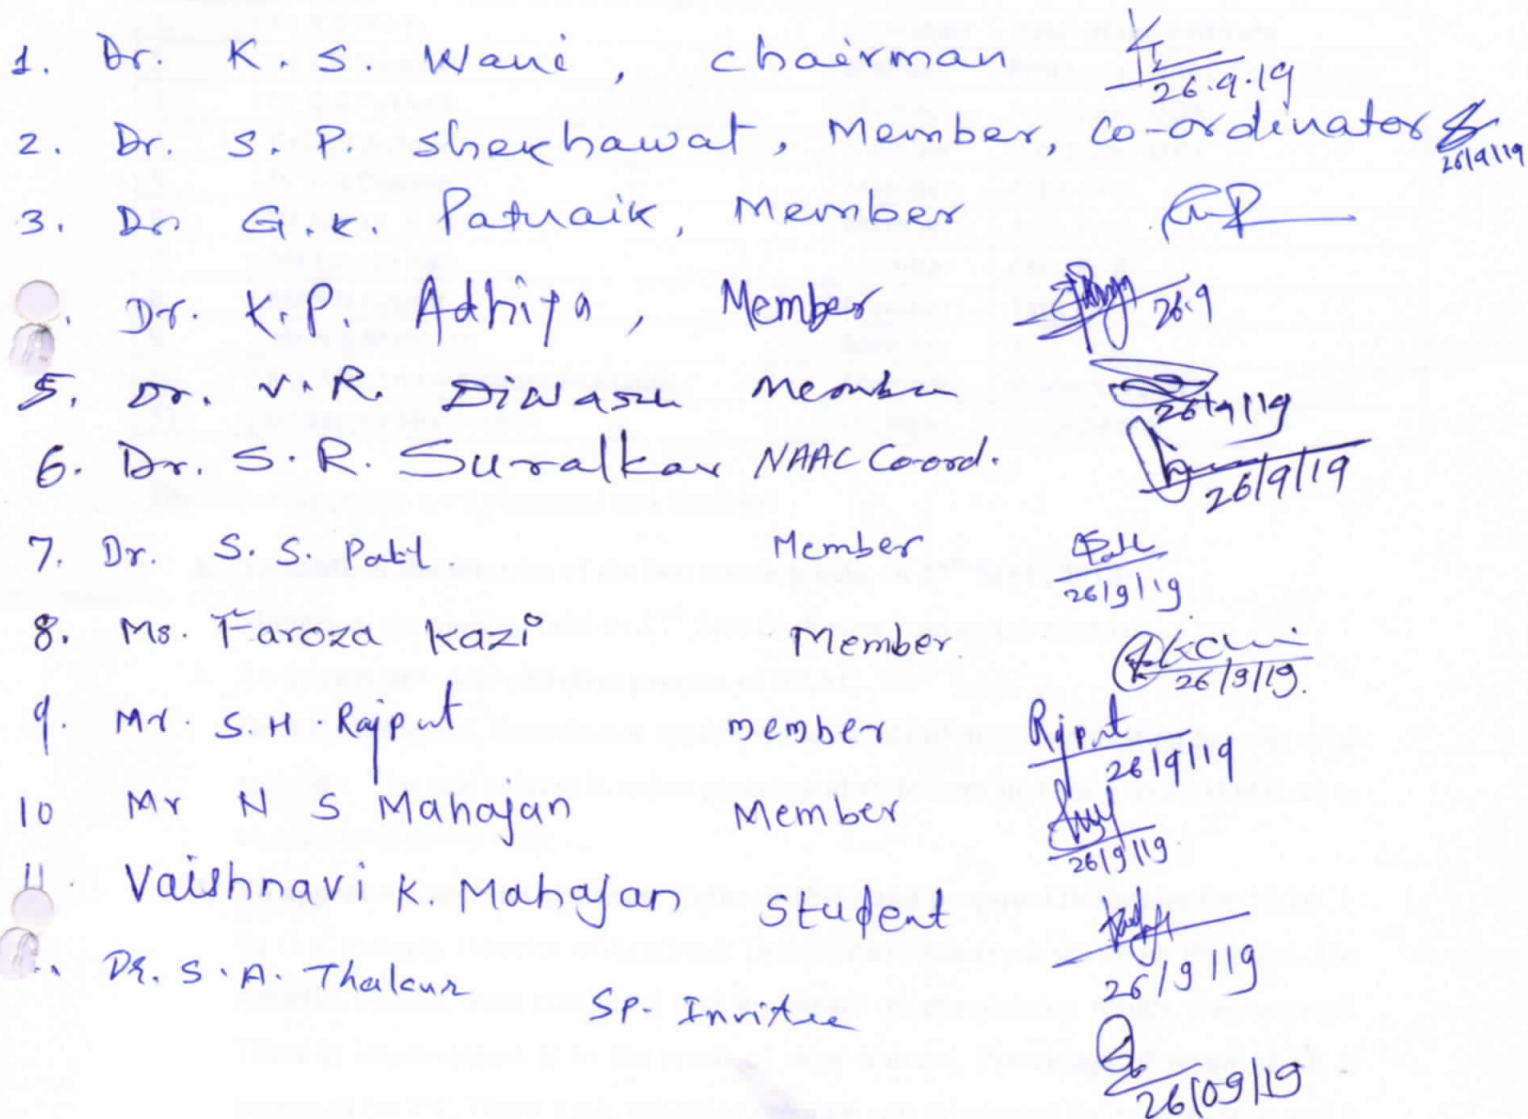 1. Dr. K. S Wani, Chairman 26.9.19
2. Dr. S. P. Shekhawat, Member, Co-ordinator 26/9/19
3. Dr G.K. Patnaik, Member
. Dr. K.P. Adhiya, Member 26.9
5. Dr. V.R. Diwase Member 26/9/19
6. Dr. S.R. Suralkar NAAC Coord. 26/9/19
7. Dr. S.S. Patil Member 26/9/19
8. Ms. Faroza Kazi Member 26/9/19.
9. Mr. S.H. Rajput member Rajput 26/9/19
10 Mr N S Mahajan Member 26/9/19
11. Vaishnavi K Mahajan Student 26/9/19
. Dr. S.A. Thakur Sp. Invitee 26/09/19